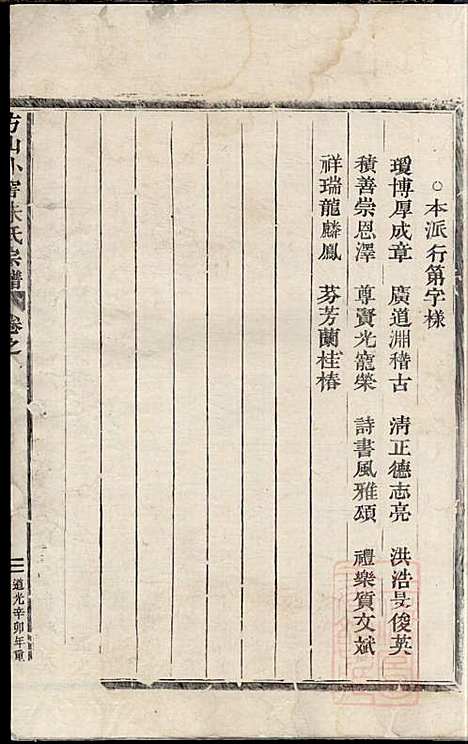 ○本派行第字樣
瓊博厚成章 廣道淵稽古 清正德志亮 洪浩旻俊英
積善崇恩澤 尊賢光寵榮 詩書風雅頌 禮樂質文斌
祥瑞龍麟鳳 芬芳蘭桂椿
方山小宅朱氏宗譜 卷之
二 道光辛卯年重